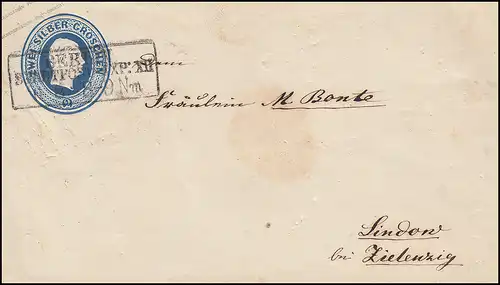 ZWEI SILBER GROSCHEN
2
Fräulein M Bonte
Lindow
bei Zielenzig